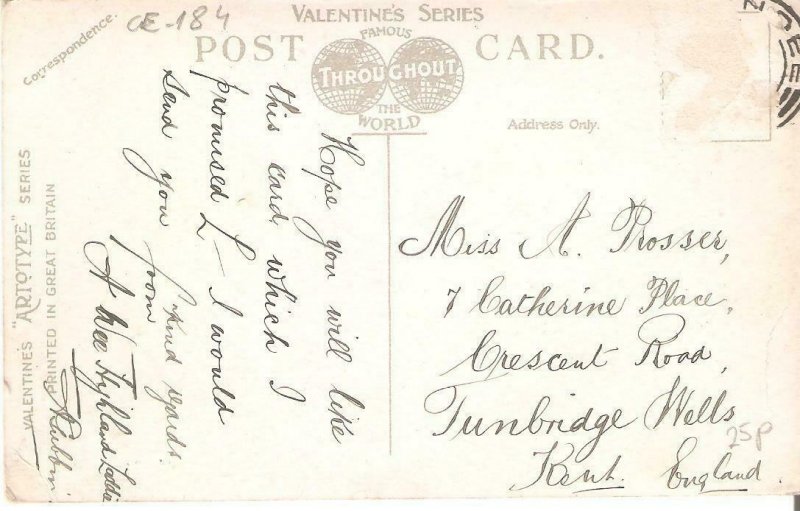 CE-184
VALENTINE'S SERIES
Correspondence.
POST CARD.
FAMOUS
THROUGHOUT
THE
WORLD
Address Only.
Hope you will like
this card which I
promised L— I would
send you
Kind regards.
from
A Wee Highland Laddie
VALENTINE'S "ARTOTYPE" SERIES
PRINTED IN GREAT BRITAIN
Miss A. Prosser,
7 Catherine Place,
Crescent Road,
Tunbridge Wells
Kent. England.
25p